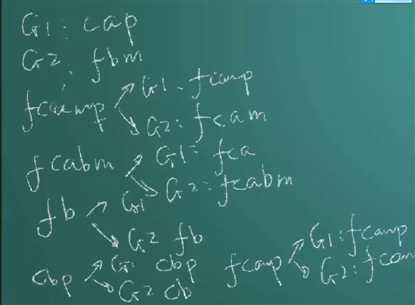 G1: cap
G2: fbm
G1: fcamp
G2: fcam
fcabm G1: fca
G2: fcabm
fb G1
G2 fb
cbp G1 cbp
G2 cb
fcamp G1: fcamp
G2: fcam